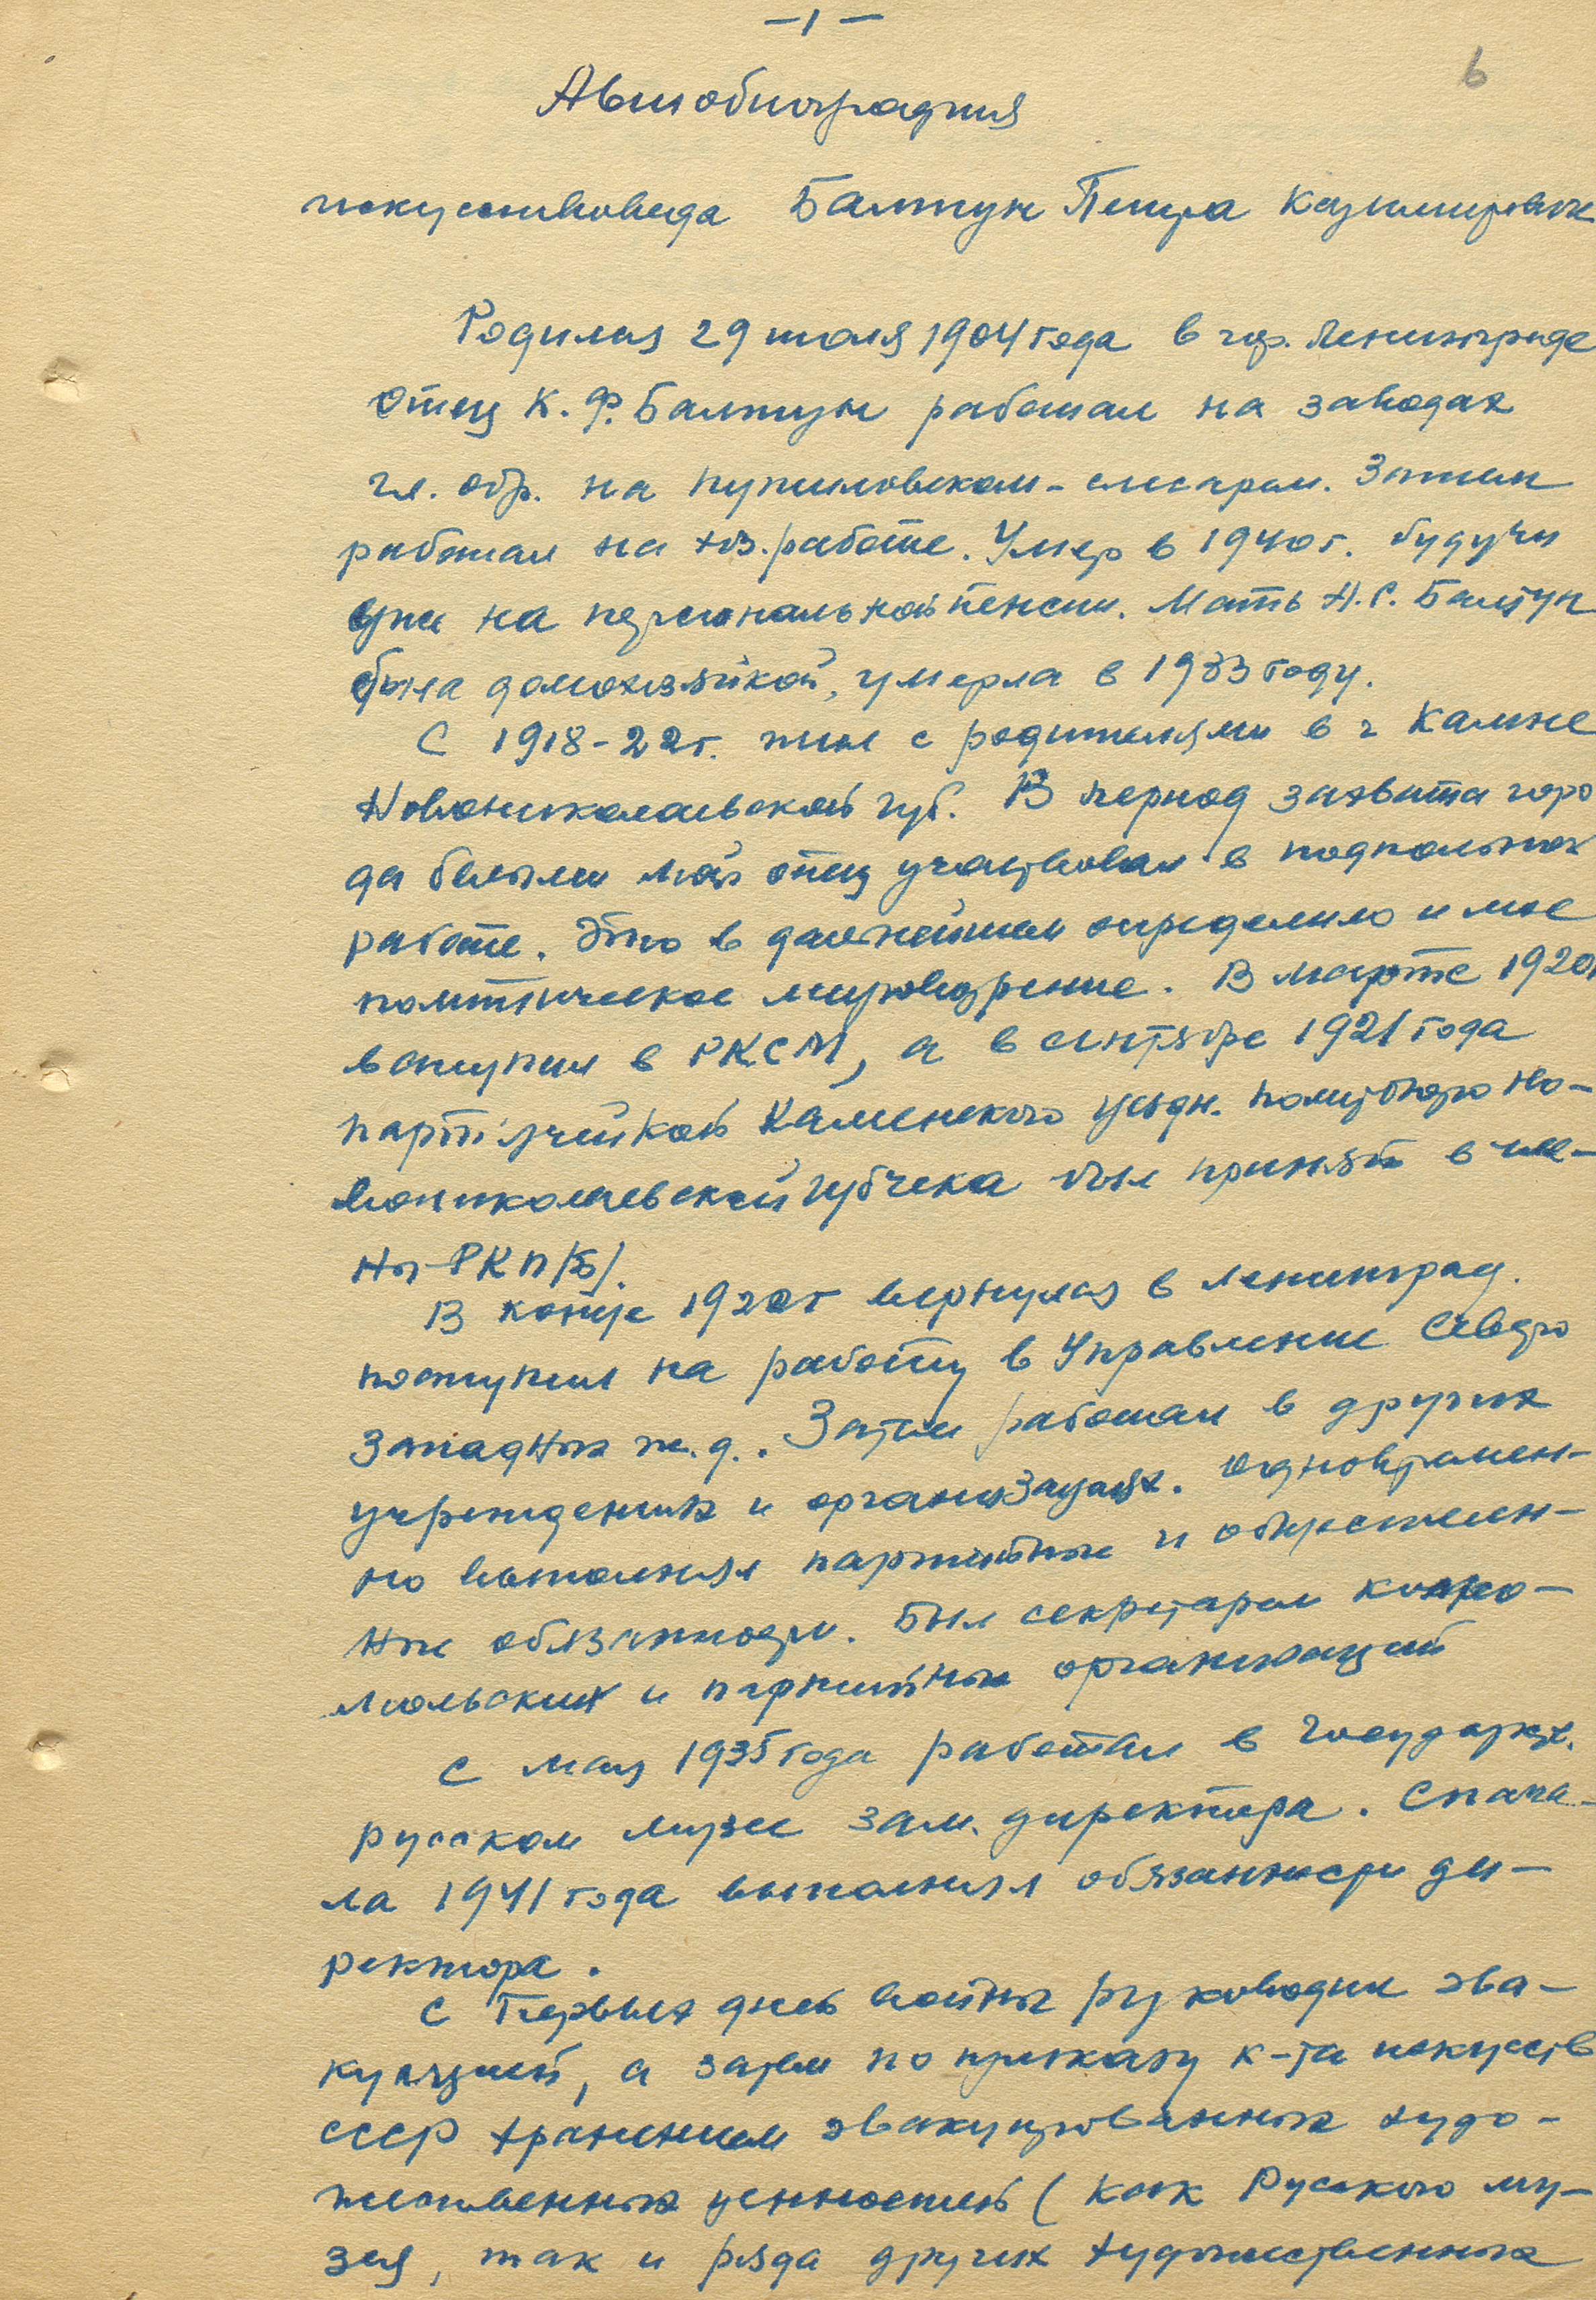 – 1 –
6
Автобиография
искусствоведа Балтун Петра Казимировича
Родился 29 июля 1904 года в гор. Ленинграде
Отец К. Ф. Балтун работал на заводах
гл. обр. на Путиловском – слесарем. Затем
работал на хоз. работе. Умер в 1940 г. будучи
уже на персональной пенсии. Мать Н. С. Балтун
была домохозяйкой, умерла в 1933 году.
С 1918-22 г. жил с родителями в г Камне
Новониколаевской губ. В период захвата горо
да белыми мой отец участвовал в подпольной
работе. Это в дальнейшем определило и мое
политическое мировоззрение. В марте 1920
вступил в РКСМ, а в сентябре 1921 года
партячейкой Каменского уездн. Политбюро Но-
вониколаевской губчека был принят в чле-
ны РКП/б/.
В конце 1922 г вернулся в Ленинград.
поступил на работу в Управление Северо
Западных ж. д. . Затем работал в других
учреждениях и организациях. Одновремен-
но выполнял партийные и обществен-
ные обязанности. Был секретарем комсо-
мольских и партийных организаций
С мая 1935 года работал в Государств.
русском музее зам. директора. С нача-
ла 1941 года выполнял обязанности ди-
ректора.
С первых дней войны руководил эва-
куацией, а затем по приказу к-та искусств
СССР хранением эвакуированных худо-
жественных ценностей ( как Русского му-
зея, так и ряда других художественных